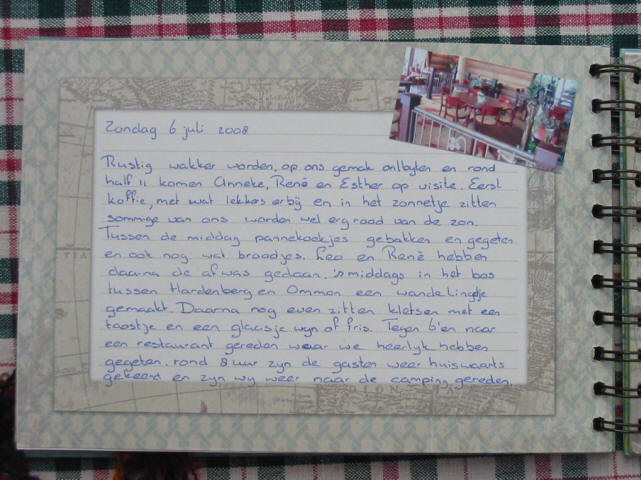 Zondag 6 juli 2008
Rustig wakker worden, op ons gemak ontbyten en rond
half 11 komen Anneke, René en Esther op visite. Eerst
koffie, met wat lekkers erbij en in het zonnetje zitten
sommige van ons worden wel erg rood van de zon.
Tussen de middag pannekoekjes gebakken en gegeten
en ook nog wat broodjes. Leo en René hebben
daarna de afwas gedaan. 's middags in het bos
tussen Hardenberg en Ommen een wandelingetje
gemaakt. Daarna nog even zitten kletsen met een
toostje en een glaasje wyn of fris. Tegen 6'en naar
een restaurant gereden waar we heerlyk hebben
gegeten. rond 8 uur zyn de gasten weer huiswaarts
gekeerd en zyn wy weer naar de camping gereden.